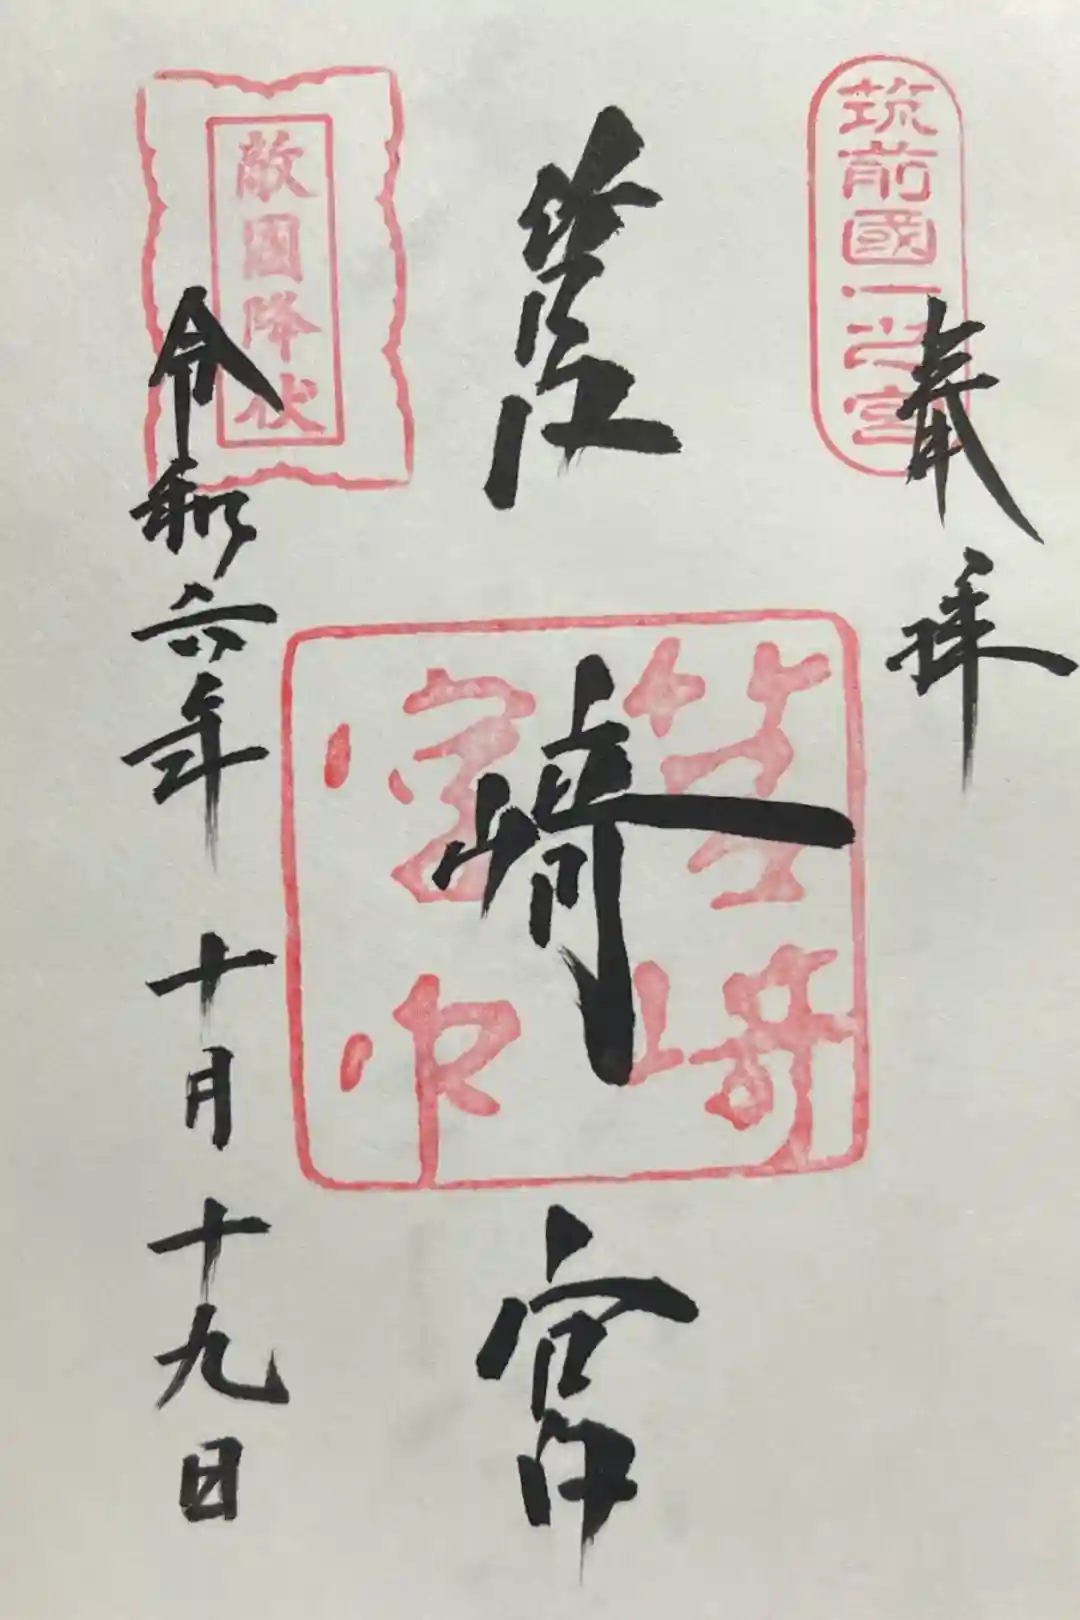 奉拝
筑前國一之宮
筥崎宮
筥崎
宮印
敵國降伏
令和六年十月十九日